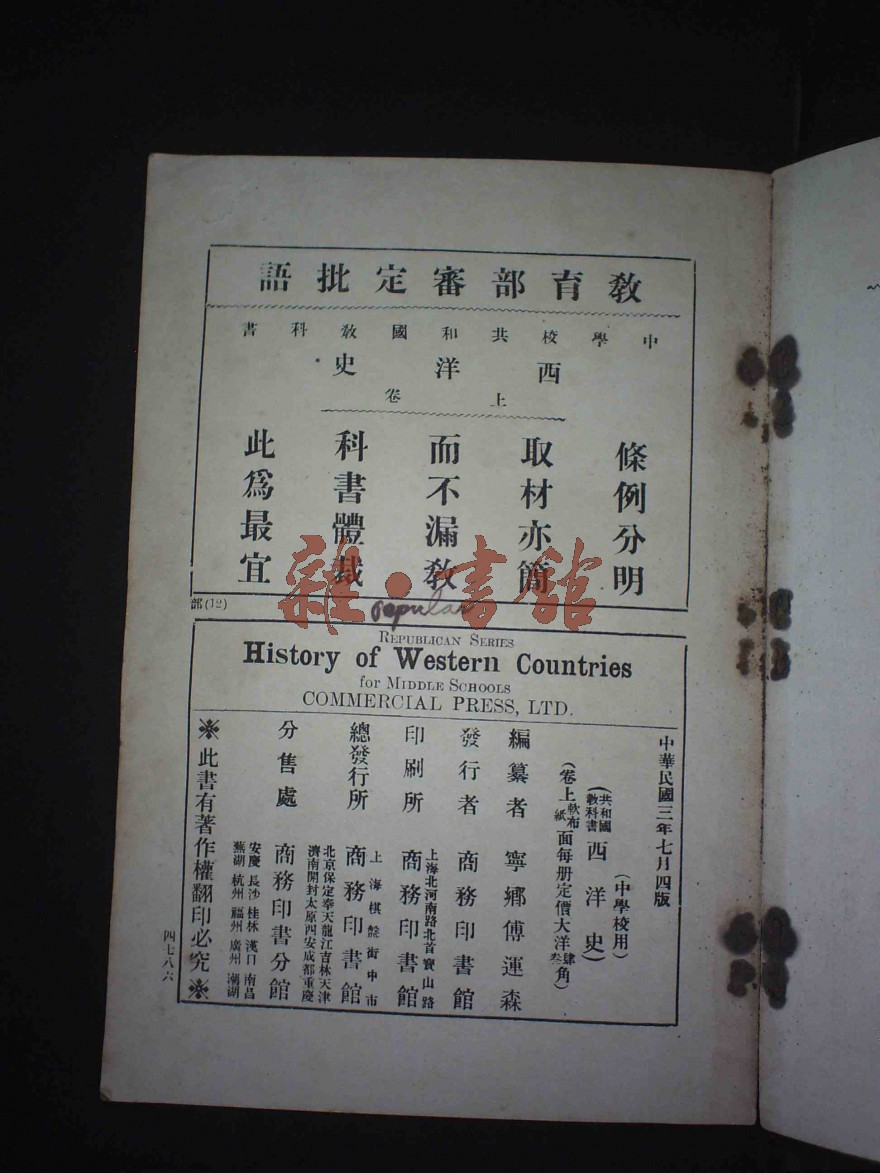 教育部審定批語
中學校共和國教科書
西洋史
上卷
條例分明
取材亦簡
而不漏教
科書體裁
此爲最宜
部(12)
雜·書館
popular
REPUBLICAN SERIES
History of Western Countries
for MIDDLE SCHOOLS
COMMERCIAL PRESS, LTD.
中華民國三年七月四版
(中學校用)
(共和國教科書西洋史)
(卷上軟布紙面每册定價大洋肆叁角)
編纂者 寧鄉傅運森
發行者 商務印書館
上海北河南路北首寶山路
印刷所 商務印書館
上海棋盤街中市
總發行所 商務印書館
北京保定奉天龍江吉林天津
濟南開封太原西安成都重慶
分售處 商務印書分館
安慶 長沙 桂林 漢口 南昌
蕪湖 杭州 福州 廣州 潮湖
※此書有著作權翻印必究※
四七八六